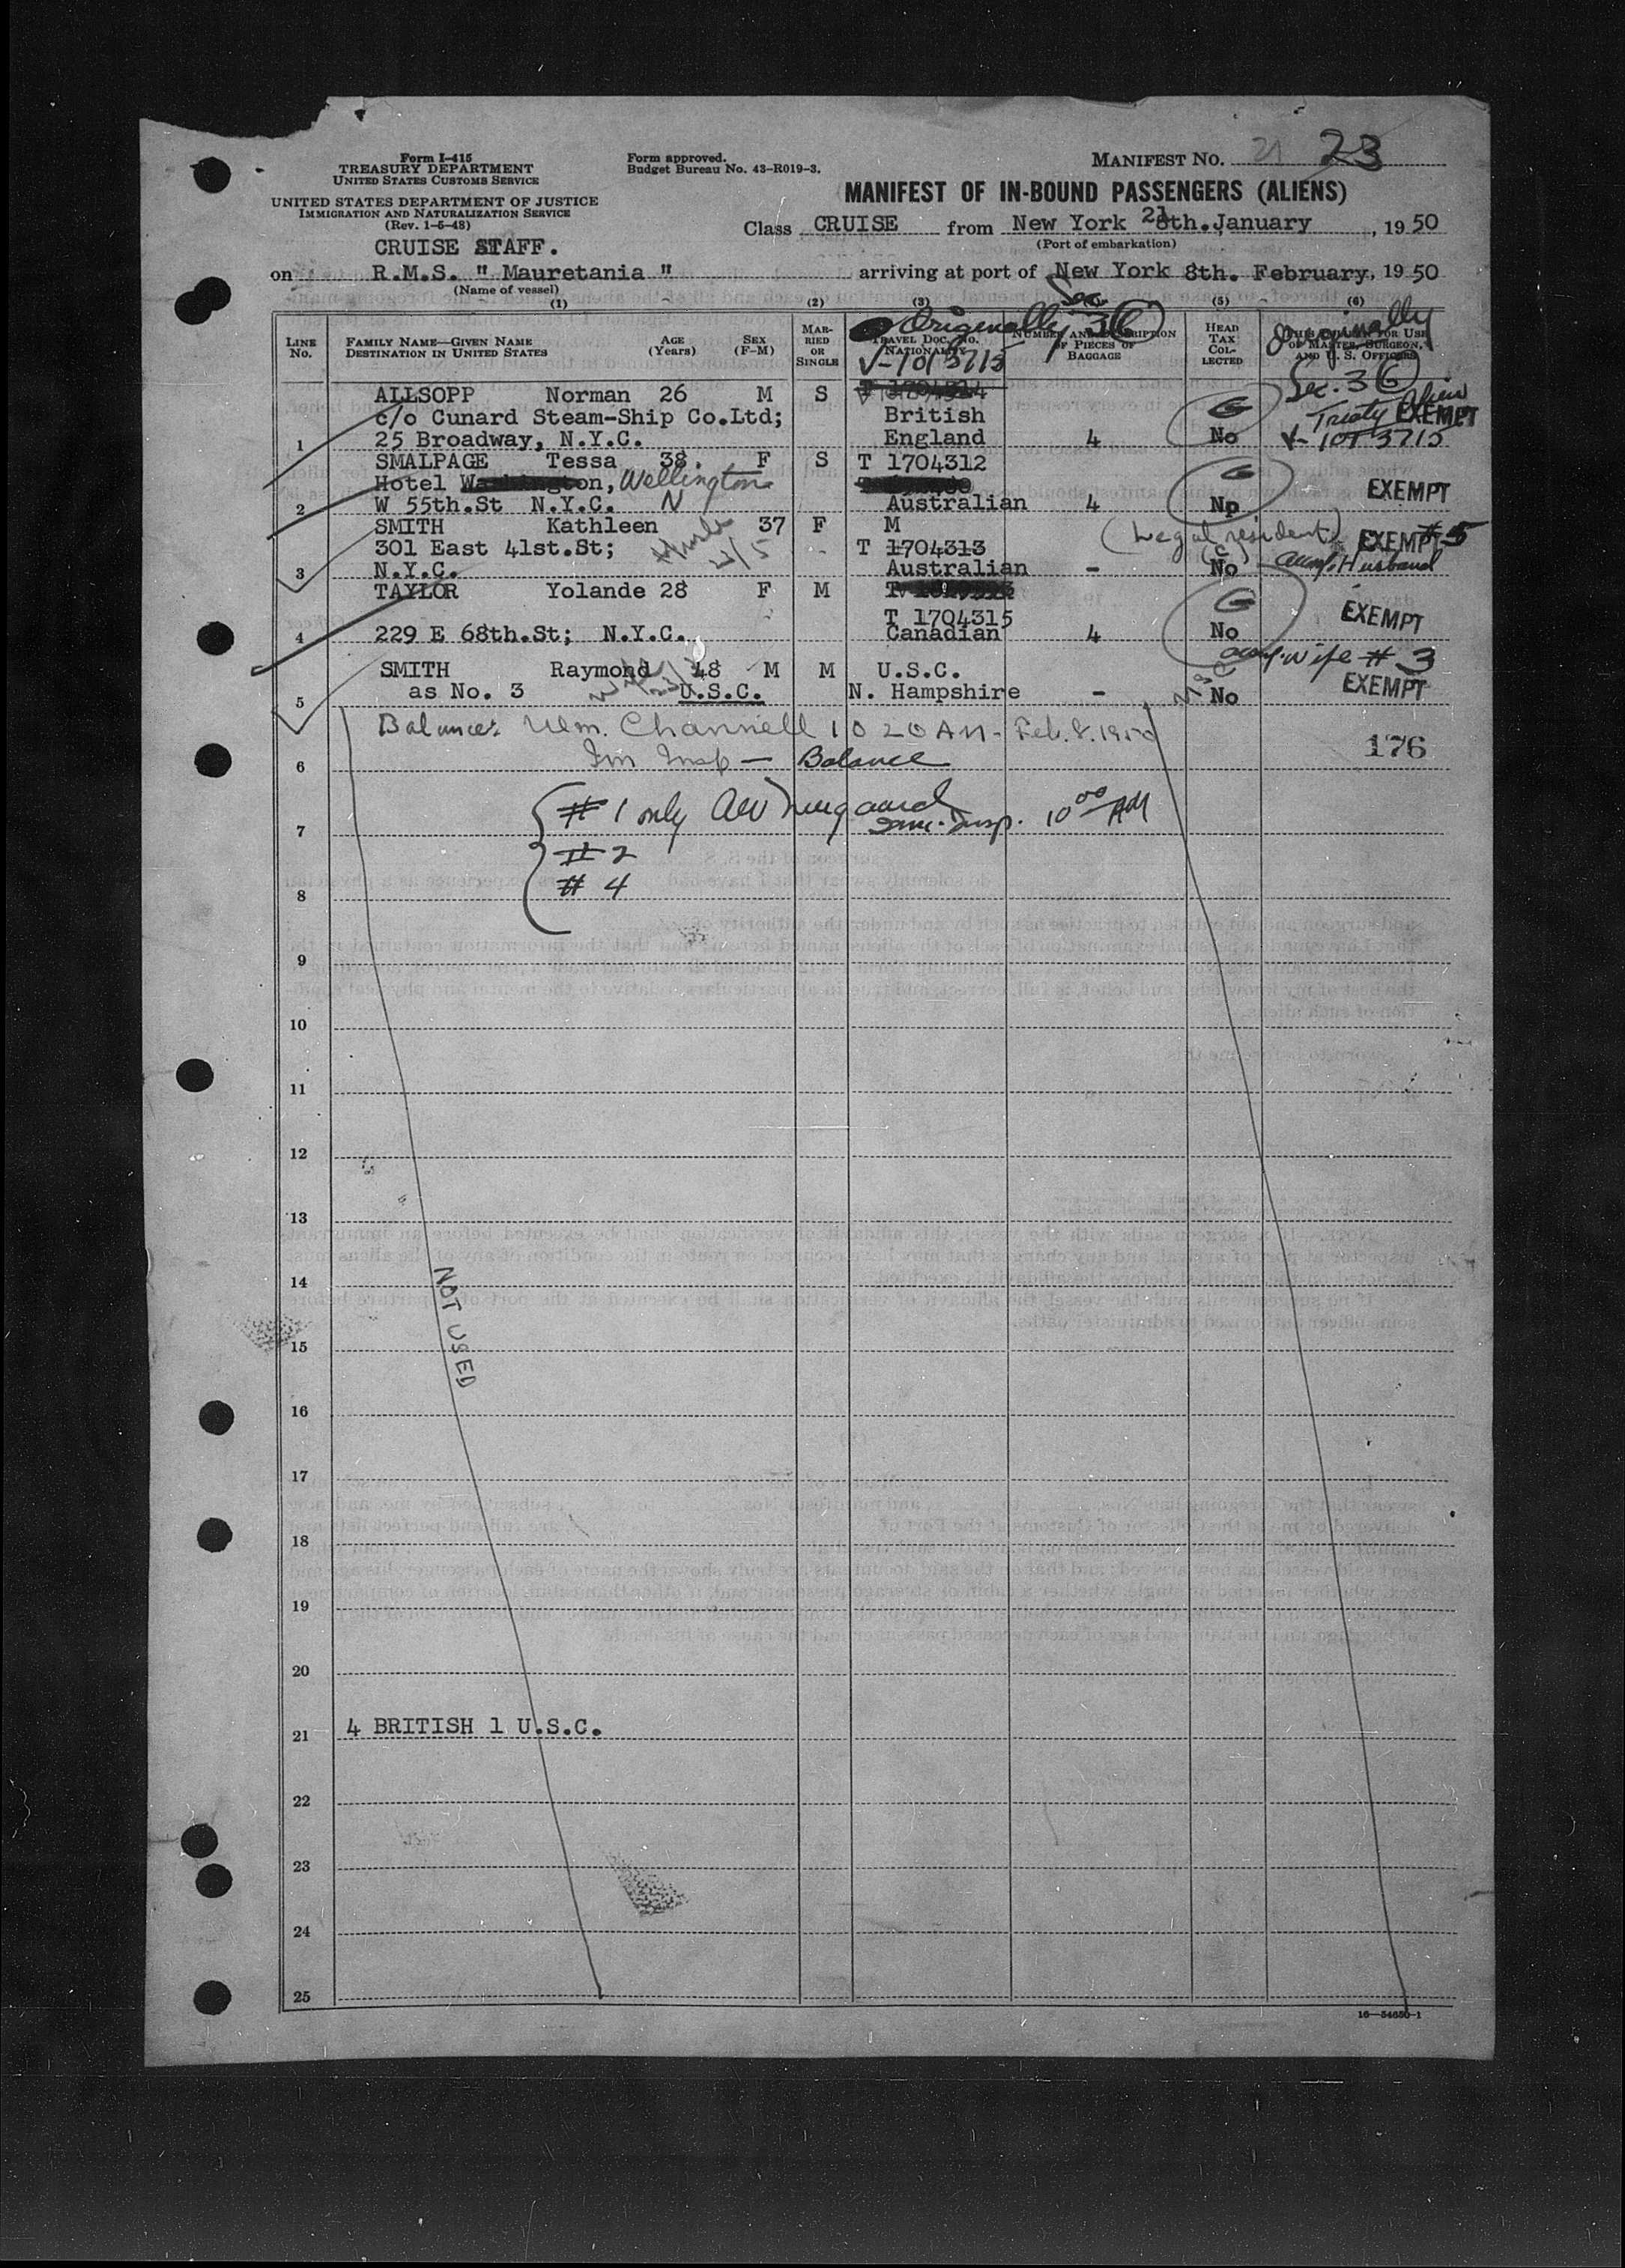 Form I-415
TREASURY DEPARTMENT
UNITED STATES CUSTOMS SERVICE
UNITED STATES DEPARTMENT OF JUSTICE
IMMIGRATION AND NATURALIZATION SERVICE
(Rev. 1-5-48)
Form approved.
Budget Bureau No. 43-R019-3.
MANIFEST NO. 21 23
MANIFEST OF IN-BOUND PASSENGERS (ALIENS)
Class CRUISE from New York 21th. January, 1950
(Port of embarkation)
CRUISE STAFF.
on R.M.S. " Mauretania " arriving at port of New York 8th. February, 1950
(Name of vessel)
(1) (2) (3) (5) (6)
Originally Sec 3(6)
V-1013715
Originally
Sec. 3(6)
LINE No.
FAMILY NAME—GIVEN NAME
DESTINATION IN UNITED STATES
AGE (Years)
SEX (F-M)
MARRIED OR SINGLE
TRAVEL DOC. NO.
NATIONALITY
NUMBER AND DESCRIPTION OF PIECES OF BAGGAGE
HEAD TAX COLLECTED
THIS COLUMN FOR USE OF MASTER, SURGEON, AND U. S. OFFICERS
ALLSOPP Norman 26 M S T 1704314 Treaty Alien EXEMPT
c/o Cunard Steam-Ship Co.Ltd; British G
1 25 Broadway, N.Y.C. England 4 No V-1013715
SMALPAGE Tessa 38. F S T 1704312 G
Hotel Washington, Wellington EXEMPT
2 W 55th.St N.Y.C. N Australian 4 No
SMITH Kathleen 37 F M (Legal resident) EXEMPT #5
301 East 41st.St; T 1704313
3 N.Y.C. Australian - No accomp. Husband
TAYLOR Yolande 28 F M G
T 1704315 EXEMPT
4 229 E 68th.St; N.Y.C. Canadian 4 No
accomp. wife # 3
SMITH Raymond 48 M M U.S.C.
5 as No. 3 U.S.C. N. Hampshire - No EXEMPT
Balance: Wm. Channell 10 20 AM - Feb. 8. 1950
176
6 Im Insp — Balance
7 # 1 only Imm. Insp. 10 00 AM
# 2
8 # 4
9
10
11
12
13
14
NOT USED
15
16
17
18
19
20
21 4 BRITISH 1 U.S.C.
22
23
24
25
16—54650-1